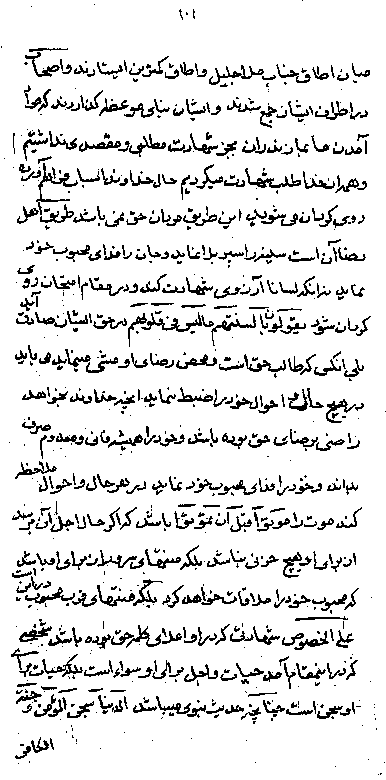 ١٠١
میان اطاق جناب ملا جلیل و اطاق کمترین ایستادند و اصحاب
در اطراف ایشان جمع شدند و ایشان بنای موعظه گذاردند که مراد
آمدن ما بمازندران بجز شهادت مطلبی و مقصدی نداشتیم
و همه از خدا طلب شهادت میکردیم حال خداوند اسباب فراهم آورده
روی گردان می شوید این طریق مردان حق نمی باشد طریق اهل
رضا آن است سینه را سپر بلا نماید و جان را فدای محبوب خود
نماید نه آنکه لسانا آرزوی شهادت کند و در مقام امتحان روی
گردان شود یقولون بالسنتهم ما لیس فی قلوبهم در حق ایشان صادق آید
بلی آنکس که طالب حق است و محض رضای او مشی مینماید می باید
در هیچ حالی احوال خود را ضبط نماید آنچه خداوند بخواهد
راضی برضای حق بوده باشد و خود را همیشه فانی و معدوم صرف
بداند و خود را فدای محبوب خود نماید در هر حال و احوال ملاحظه
کند موت را موتوا قبل ان تموتوا باشد که اگر حال اجل آن برسد
از برای او هیچ حزنی نباشد بلکه منتهای سرور از برای او باشد
که محبوب خود را ملاقات خواهد کرد بلکه منتهای قرب محبوب در این است
علی الخصوص شهادت که در اعلای کلمه حق بوده باشد شخصی
که در این مقام آمد حیات و اجل برای او سواء است بلکه حیات برای
او سجن است چنانچه حدیث نبوی میباشد الدنیا سجن المؤمن و جنة
الکافر